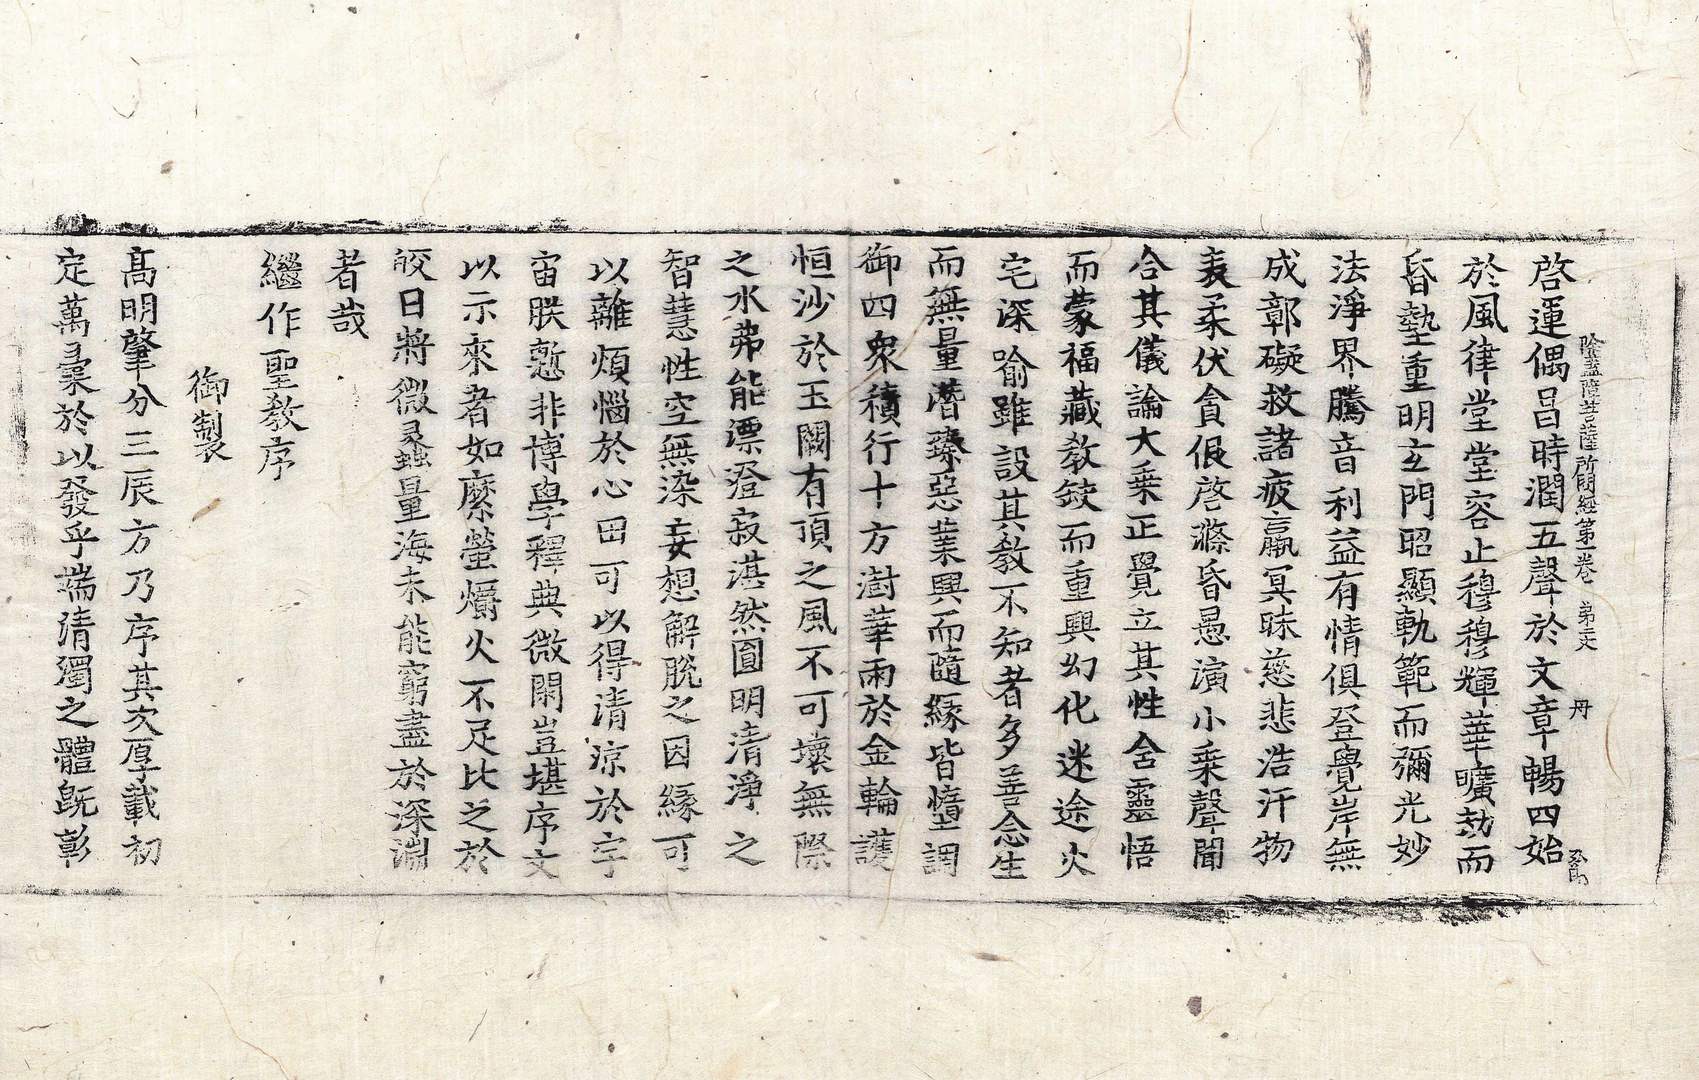 除蓋障菩薩所問經第一卷 第二丈 丹
啓運偶昌時潤五聲於文章暢四始
於風律堂堂容止穆穆輝華曠劫而
昏墊重明玄門昭顯軌範而彌光妙
法淨界騰音利益有情俱登覺岸無
成鄣礙救諸疲羸冥昧慈悲浩汗物
表柔伏貪佷啓滌昏愚演小乘聲聞
合其儀論大乘正覺立其性含靈悟
而蒙福藏敎鈌而重興幻化迷途火
宅深喻雖設其敎不知者多善念生
而無量潛臻惡業興而隨緣皆墮調
御四衆積行十方澍華雨於金輪護
恒沙於玉闕有頂之風不可壞無際
之水弗能漂澄寂湛然圓明清淨之
智慧性空無染妄想解脫之因緣可
以離煩惱於心田可以得清涼於宇
宙朕慙非博學釋典微閑豈堪序文
以示來者如縻螢爝火不足比之於
皎日將微蠡量海未能窮盡於深淵
者哉
繼作聖敎序
御製
高明肇分三辰方乃序其次厚載初
定萬彙於以發乎端清濁之體旣彰